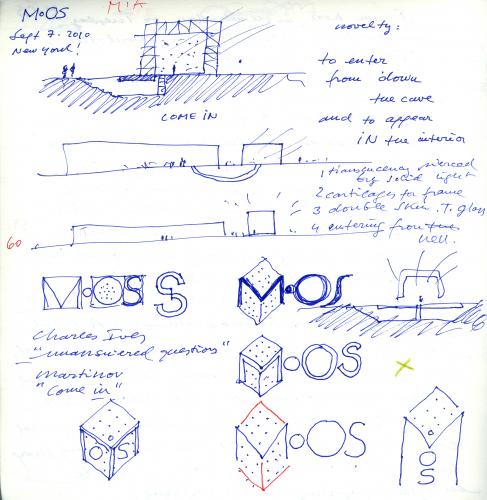 M·OS
MIA
Sept 7. 2010
New York!
COME IN
novelty:
to enter
from down
the cave
and to appear
IN the interior
1 translucency pierced
by solid light
2 cartilages for frame
3 double skin. T. glass
4 entering from the
hell.
60
M·OS S
M·OS
Charles Ives
"unanswered questions"
Martinov
"Come in"
M·OS
OS
M·OS
M
OS